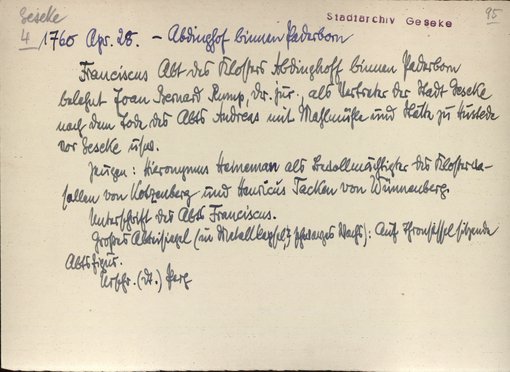 Geseke
Stadtarchiv Geseke
95
4 1760 Apr. 28. – Abdinghof binnen Paderborn
Franciscus Abt des Klosters Abdinghoff binnen Paderborn
belehnt Joan Bernard Rump, dr. jur., als Vertreter der Stadt Geseke
nach dem Tode des Abts Andreas mit Mahlmühle und Stätte zu Hustede
vor Geseke usw.
Zeugen: Hieronymus Heineman als Bevollmächtigter des Klosterva-
sallen von Kotzenberg und Henricus Tacken von Wünnenberg.
Unterschrift des Abts Franciscus.
Großes Abteisiegel (in Metallkapsel, schwarzes Wachs): Auf Thronsessel sitzende
Abtsfigur.
Urschr. (dt.) Perg